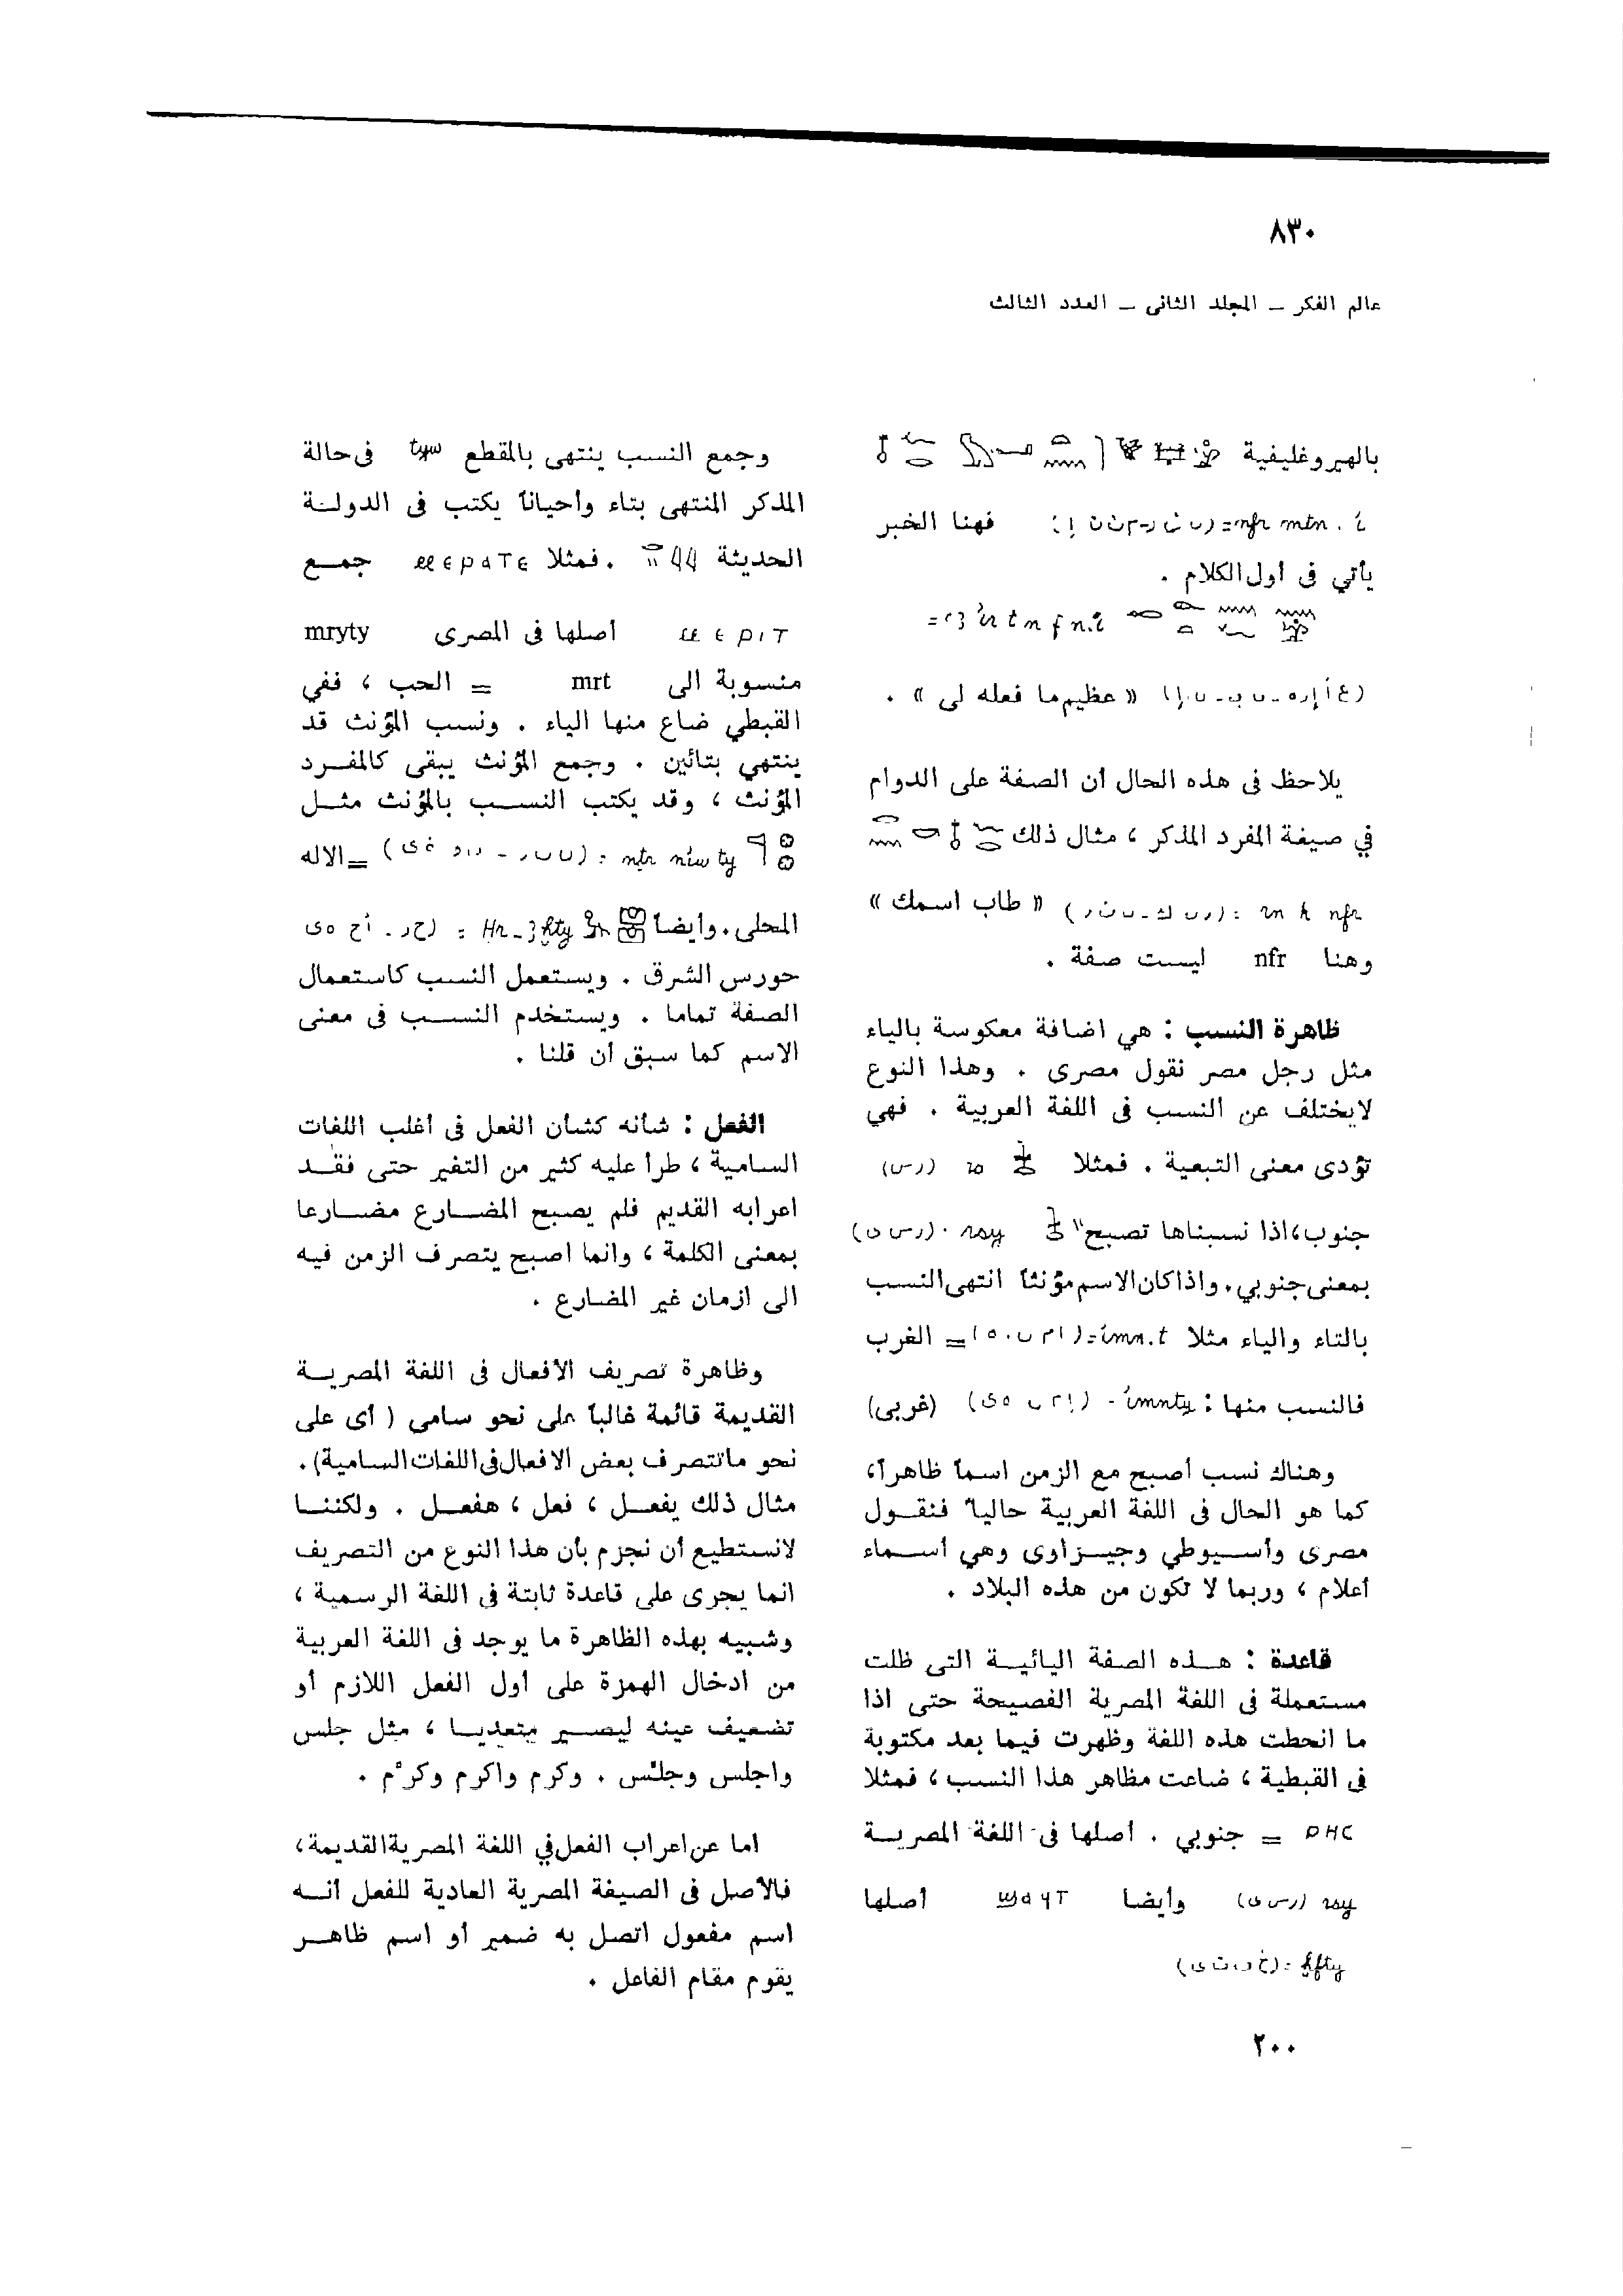 ٨٣٠
عالم الفكر ــ المجلد الثانى ــ العدد الثالث
بالهيروغليفية
nfr mtn . i فهنا الخبر
يأتي فى أول الكلام .
« عظيم ما فعله لى » .
يلاحظ فى هذه الحال أن الصفة على الدوام
في صيغة المفرد المذكر ، مثال ذلك
rn k nfr « طاب اسمك »
وهنا nfr ليست صفة .
ظاهرة النسب : هي اضافة معكوسة بالياء
مثل رجل مصر نقول مصرى . وهذا النوع
لايختلف عن النسب فى اللغة العربية . فهي
تؤدى معنى التبعية . فمثلا rs (رس)
جنوب،اذا نسبناها تصبح rsy . (رس ى)
بمعنى جنوبي. واذاكان الاسم مؤنثاً انتهى النسب
بالتاء والياء مثلا imn.t = الغرب
فالنسب منها : imnty (غربى)
وهناك نسب أصبح مع الزمن اسماً ظاهراً،
كما هو الحال فى اللغة العربية حالياً فنقـول
مصرى وأسـيوطي وجيـزاوى وهي أسـماء
أعلام ، وربما لا تكون من هذه البلاد .
قاعدة : هـذه الصفة اليائيـة التى ظلت
مستعملة فى اللغة المصرية الفصيحة حتى اذا
ما انحطت هذه اللغة وظهرت فيما بعد مكتوبة
فى القبطية ، ضاعت مظاهر هذا النسب ، فمثلا
ⲣⲏⲥ = جنوبي . أصلها فى اللغة المصريـة
rsy (رس ى) وأيضا أصلها
ḫfty
٢٠٠
وجمع النسب ينتهى بالمقطع tyw فى حالة
المذكر المنتهى بتاء وأحياناً يكتب فى الدولـة
الحديثة . فمثلا ⲙⲉⲣⲁⲧⲉ جمـع
ⲙⲉⲣⲓⲧ أصلها فى المصرى mryty
منسوبة الى mrt = الحب ، ففي
القبطي ضاع منها الياء . ونسب المؤنث قد
ينتهي بتائين . وجمع المؤنث يبقى كالمفـرد
المؤنث ، وقد يكتب النسـب بالمؤنث مثـل
nṯr niwty = الاله
المحلى. وأيضاً
حورس الشرق . ويستعمل النسب كاستعمال
الصفة تماما . ويستخدم النسـب فى معنى
الاسم كما سبق أن قلنا .
الفعل : شأنه كشأن الفعل فى أغلب اللغات
السامية ، طرأ عليه كثير من التغير حتى فقـد
اعرابه القديم فلم يصبح المضـارع مضـارعا
بمعنى الكلمة ، وانما اصبح يتصرف الزمن فيـه
الى ازمان غير المضارع .
وظاهرة تصريف الأفعال فى اللغة المصريـة
القديمة قائمة غالباً على نحو سامى ( أى على
نحو ماتتصرف بعض الافعال فى اللغات السامية) .
مثال ذلك يفعـل ، فعل ، هفعـل . ولكننـا
لانستطيع أن نجزم بأن هذا النوع من التصريف
انما يجرى على قاعدة ثابتة فى اللغة الرسمية ،
وشبيه بهذه الظاهرة ما يوجد فى اللغة العربية
من ادخال الهمزة على أول الفعل اللازم أو
تضعيف عينه ليصـير متعديـا ، مثل جلس
واجلس وجلّس . وكرم واكرم وكرّم .
اما عن اعراب الفعل في اللغة المصرية القديمة،
فالأصل فى الصيغة المصرية العادية للفعل أنـه
اسم مفعول اتصل به ضمير أو اسم ظاهـر
يقوم مقام الفاعل .